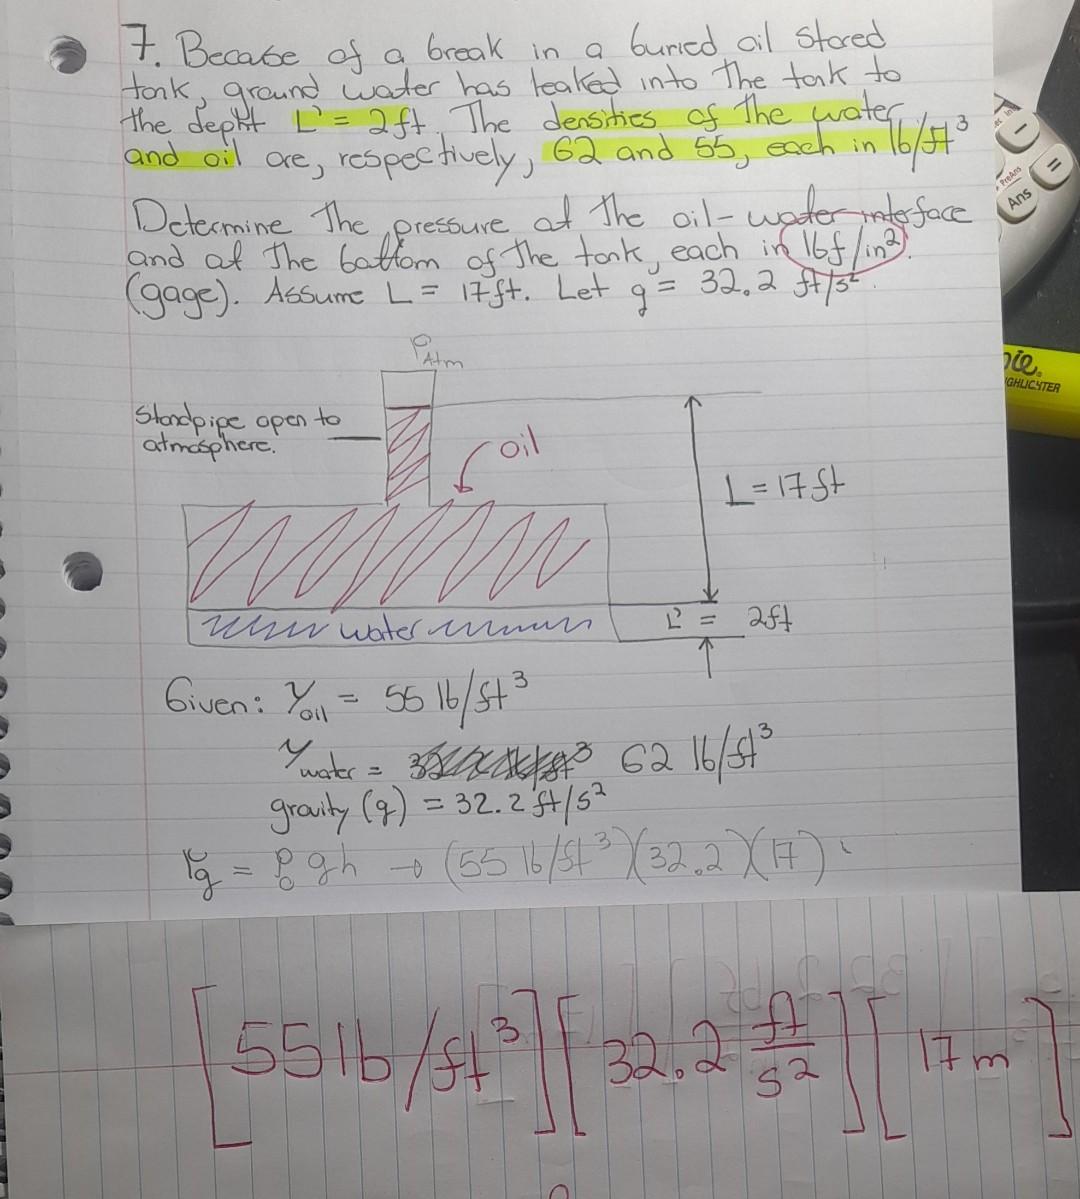 7. Because of a break in a buried oil stored
tank, ground water has leaked into the tank to
the depht L' = 2ft. The densities of the water
and oil are, respectively, 62 and 55, each in lb/ft³
Determine the pressure at the oil-water interface
and at the bottom of the tank, each in lbf/in².
(gage). Assume L = 17ft. Let g = 32.2 ft/s².
PAtm
Standpipe open to
atmosphere.
oil
L = 17ft
water
L' = 2ft
Given: γoil = 55 lb/ft³
γwater = 62 lb/ft³
gravity (g) = 32.2 ft/s²
Pg = ρo gh → (55 lb/ft³)(32.2)(17)
[55 lb/ft³][32.2 ft/s²][17 m]
PreAns
Ans
−
=
pie.
IGHLIGHTER